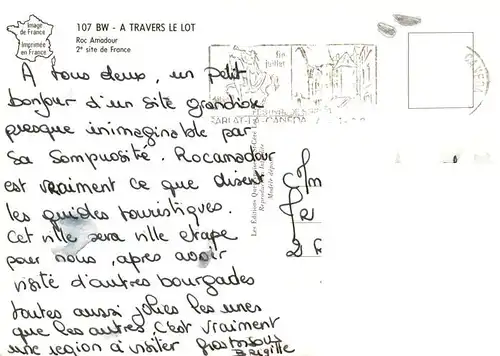 Image
de France
Imprimée
en France
107 BW - A TRAVERS LE LOT
Roc Amadour
2e site de France
fin
juillet
SARLAT-LA-CANEDA
A tous deux, un petit
bonjour d'un site grandiose
presque inimaginable par
sa sompuosité. Rocamadour
est vraiment ce que disent
les guides touristiques.
Cet ville sera ville etape
pour nous, après avoir
visité d'autres bourgades
toutes aussi jolies les unes
que les autres. C'est vraiment
une region à visiter
Brigitte
Reproduction interdite
Modèle déposé